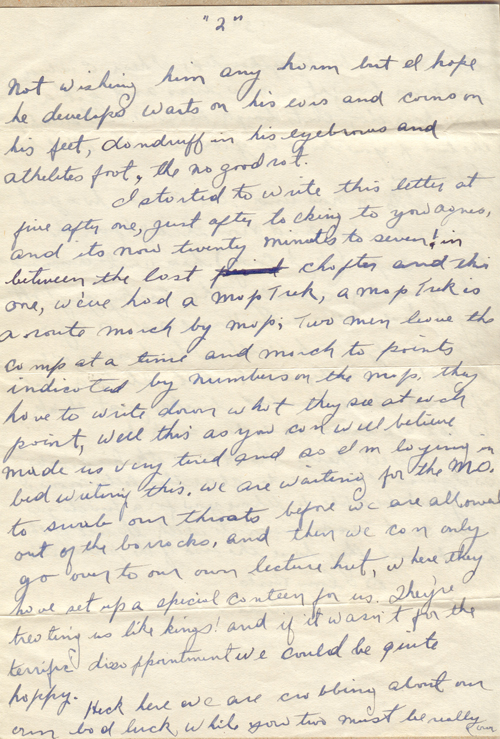 "2"
Not wishing him any harm but I hope
he develops warts on his ears and corns on
his feet, dandruff in his eyebrows and
athelites foot, the no good rot.
I started to write this letter at
five after one, just after talking to you agnes,
and its now twenty minutes to seven! in
between the last chapter and this
one, we've had a Map Trek, a map Trek is
a route march by map; Two men leave the
camp at a time and march to points
indicated by numbers on the map. they
have to write down what they see at each
point, well this as you can well believe
made us very tired and so I'm laying in
bed writing this. we are waiting for the M.O.
to swab our throats before we are allowed
out of the barracks, and then we can only
go over to our own lecture hut, where they
have set up a special canteen for us. They're
treating us like kings! and if it wasn't for the
terrific disappointment we could be quite
happy.
Heck here we are crabbing about our
own bad luck, while you two must be really